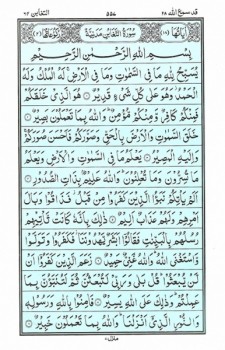 قد سمع الله ٢٨ ٥٥٨ التغابن ٦٤
اٰيَاتُهَا (١٨) سُوْرَةُ التَّغَابُنِ مَدَنِيَّةٌ رُكُوْعَاتُهَا (٢)
بِسْمِ اللّٰهِ الرَّحْمٰنِ الرَّحِيْمِ
يُسَبِّحُ لِلّٰهِ مَا فِي السَّمٰوٰتِ وَمَا فِي الْاَرْضِ ۚ لَهُ الْمُلْكُ وَلَهُ
الْحَمْدُ ۫ وَهُوَ عَلٰى كُلِّ شَيْءٍ قَدِيْرٌ هُوَ الَّذِيْ خَلَقَكُمْ
فَمِنْكُمْ كَافِرٌ وَّمِنْكُمْ مُّؤْمِنٌ ؕ وَاللّٰهُ بِمَا تَعْمَلُوْنَ بَصِيْرٌ
خَلَقَ السَّمٰوٰتِ وَالْاَرْضَ بِالْحَقِّ وَصَوَّرَكُمْ فَاَحْسَنَ صُوَرَكُمْ
وَاِلَيْهِ الْمَصِيْرُ يَعْلَمُ مَا فِي السَّمٰوٰتِ وَالْاَرْضِ وَيَعْلَمُ
مَا تُسِرُّوْنَ وَمَا تُعْلِنُوْنَ ؕ وَاللّٰهُ عَلِيْمٌۢ بِذَاتِ الصُّدُوْرِ
اَلَمْ يَاْتِكُمْ نَبَؤُا الَّذِيْنَ كَفَرُوْا مِنْ قَبْلُ ۫ فَذَاقُوْا وَبَالَ
اَمْرِهِمْ وَلَهُمْ عَذَابٌ اَلِيْمٌ ذٰلِكَ بِاَنَّهٗ كَانَتْ تَّاْتِيْهِمْ
رُسُلُهُمْ بِالْبَيِّنٰتِ فَقَالُوْۤا اَبَشَرٌ يَّهْدُوْنَنَا ۫ فَكَفَرُوْا وَتَوَلَّوْا
وَّاسْتَغْنَى اللّٰهُ ؕ وَاللّٰهُ غَنِيٌّ حَمِيْدٌ زَعَمَ الَّذِيْنَ كَفَرُوْۤا اَنْ
لَّنْ يُّبْعَثُوْا ؕ قُلْ بَلٰى وَرَبِّيْ لَتُبْعَثُنَّ ثُمَّ لَتُنَبَّؤُنَّ بِمَا
عَمِلْتُمْ ؕ وَذٰلِكَ عَلَى اللّٰهِ يَسِيْرٌ فَاٰمِنُوْا بِاللّٰهِ وَرَسُوْلِهٖ
وَالنُّوْرِ الَّذِيْۤ اَنْزَلْنَا ؕ وَاللّٰهُ بِمَا تَعْمَلُوْنَ خَبِيْرٌ
منزل ٧